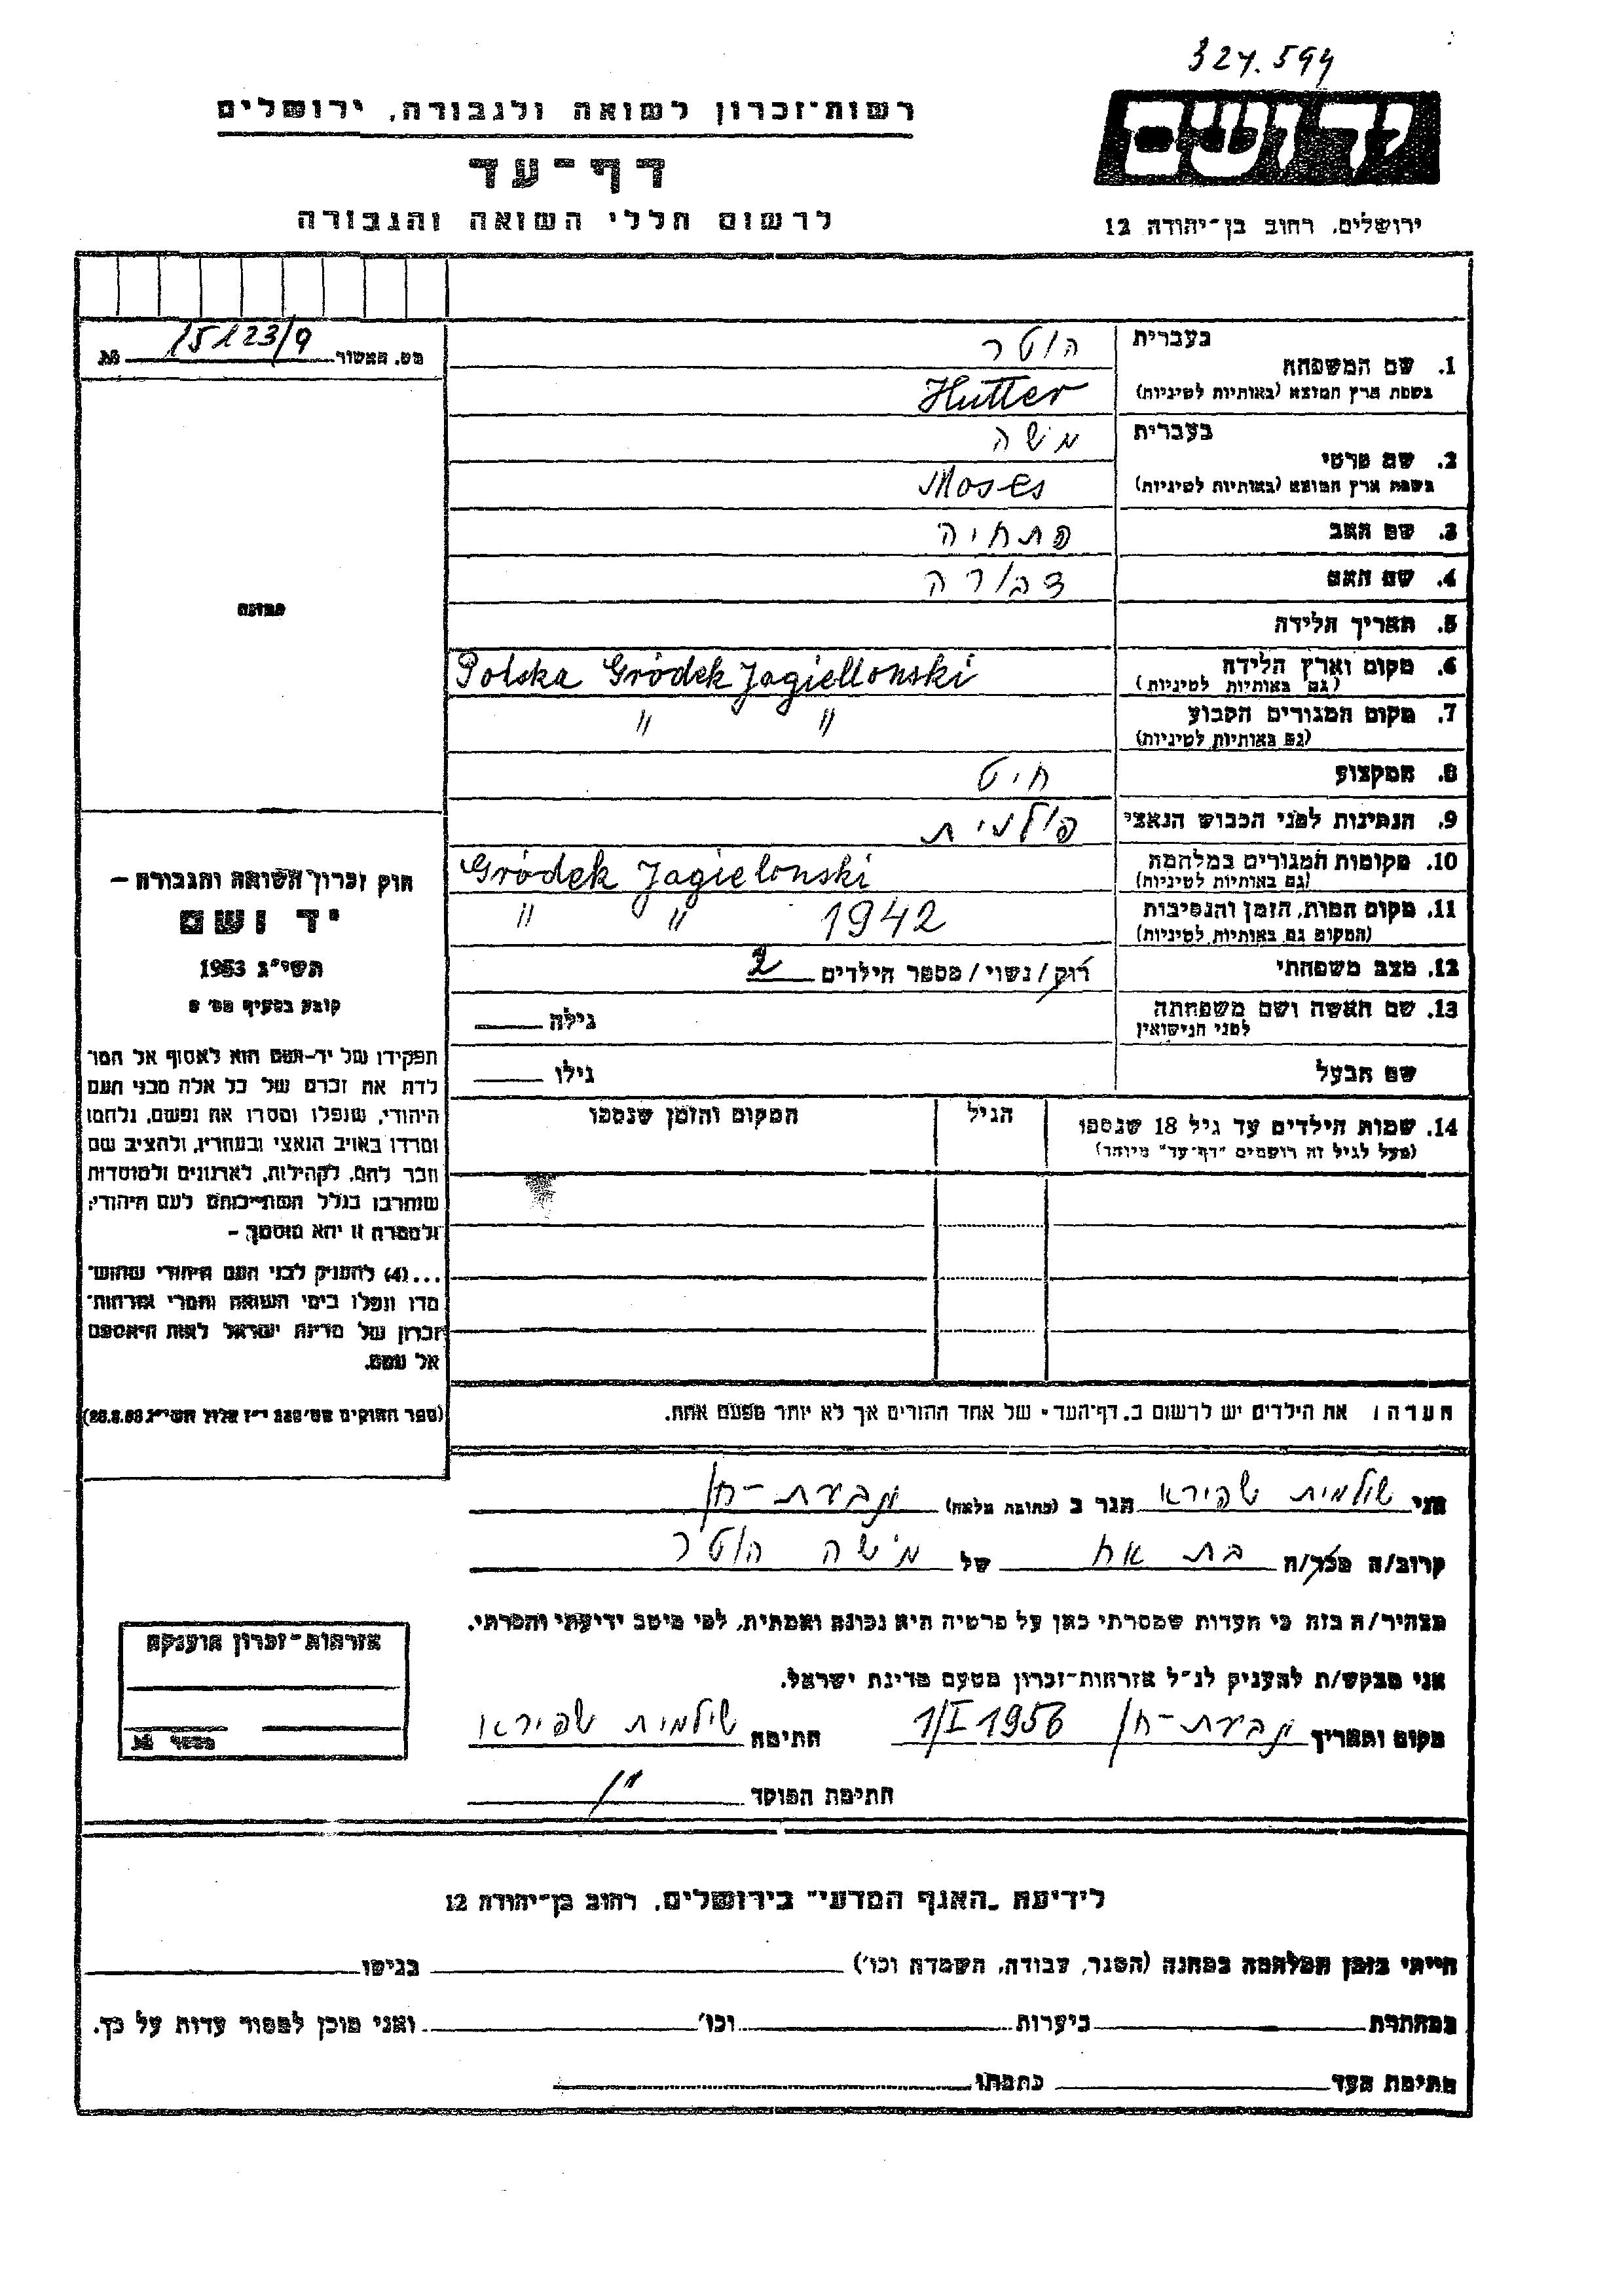 327.594
רשות־זכרון לשואה ולגבורה, ירושלים
דף־עד
לרשום חללי השואה והגבורה
יד ושם
ירושלים, רחוב בן־יהודה 12
מס. האשור № 15123/9
תמונה
1. שם המשפחה בעברית הוטר
בשפת ארץ המוצא (באותיות לטיניות) Hutter
2. שם פרטי בעברית משה
בשפת ארץ המוצא (באותיות לטיניות) Moses
3. שם האב פתחיה
4. שם האם דבורה
5. תאריך הלידה
6. מקום וארץ הלידה (גם באותיות לטיניות) Polska Gródek Jagiellonski
7. מקום המגורים הקבוע (גם באותיות לטיניות) " "
8. המקצוע חיט
9. הנתינות לפני הכבוש הנאצי פולנית
10. מקומות המגורים במלחמה (גם באותיות לטיניות) Gródek Jagielonski
11. מקום המות, הזמן והנסיבות (המקום גם באותיות לטיניות) " " 1942
12. מצב משפחתי רוק/נשוי/מספר הילדים 2
13. שם האשה ושם משפחתה לפני הנישואין גילה
שם הבעל גילו
14. שמות הילדים עד גיל 18 שנספו הגיל המקום והזמן שנספו
(מעל לגיל זה רושמים "דף־עד" מיוחד)
הערה: את הילדים יש לרשום ב„דף־העד" של אחד ההורים אך לא יותר מפעם אחת.
חוק זכרון השואה והגבורה —
יד ושם
תשי"ג 1953
קובע בסעיף מס' 2
תפקידו של יד־ושם הוא לאסוף אל המו־
לדת את זכרם של כל אלה מבני העם
היהודי, שנפלו ומסרו את נפשם, נלחמו
ומרדו באויב הנאצי ובעוזריו, ולהציב שם
וזכר להם, לקהילות, לארגונים ולמוסדות
שנחרבו בגלל השתייכותם לעם היהודי;
ולמטרה זו יהא מוסמך —
...(4) להעניק לבני העם היהודי שהוש־
מדו ונפלו בימי השואה והמרי אזרחות־
זכרון של מדינת ישראל לאות היאספם
אל עמם.
(ספר החוקים מס' 132 י"ז אלול תשי"ג 28.8.53)
אני שולמית שפירא הגר ב (כתובת מלאה) גבעת-חן
קרוב/ה מכר/ה בת אח של משה הוטר
מצהיר/ה בזה כי העדות שמסרתי כאן על פרטיה היא נכונה ואמתית, לפי מיטב ידיעתי והכרתי.
אני מבקש/ת להעניק לנ"ל אזרחות־זכרון מטעם מדינת ישראל.
מקום ותאריך גבעת-חן 1/I 1956 חתימה שולמית שפירא
חתימת הפוקד
אזרחות־זכרון הוענקה
מספר №
לידיעת „האגף המדעי" בירושלים, רחוב בן־יהודה 12
הייתי בזמן המלחמה במחנה (הסגר, עבודה, השמדה וכו') בגיטו
במחתרת ביערות וכו' ואני מוכן למסור עדות על כך.
חתימת העד כתבתו